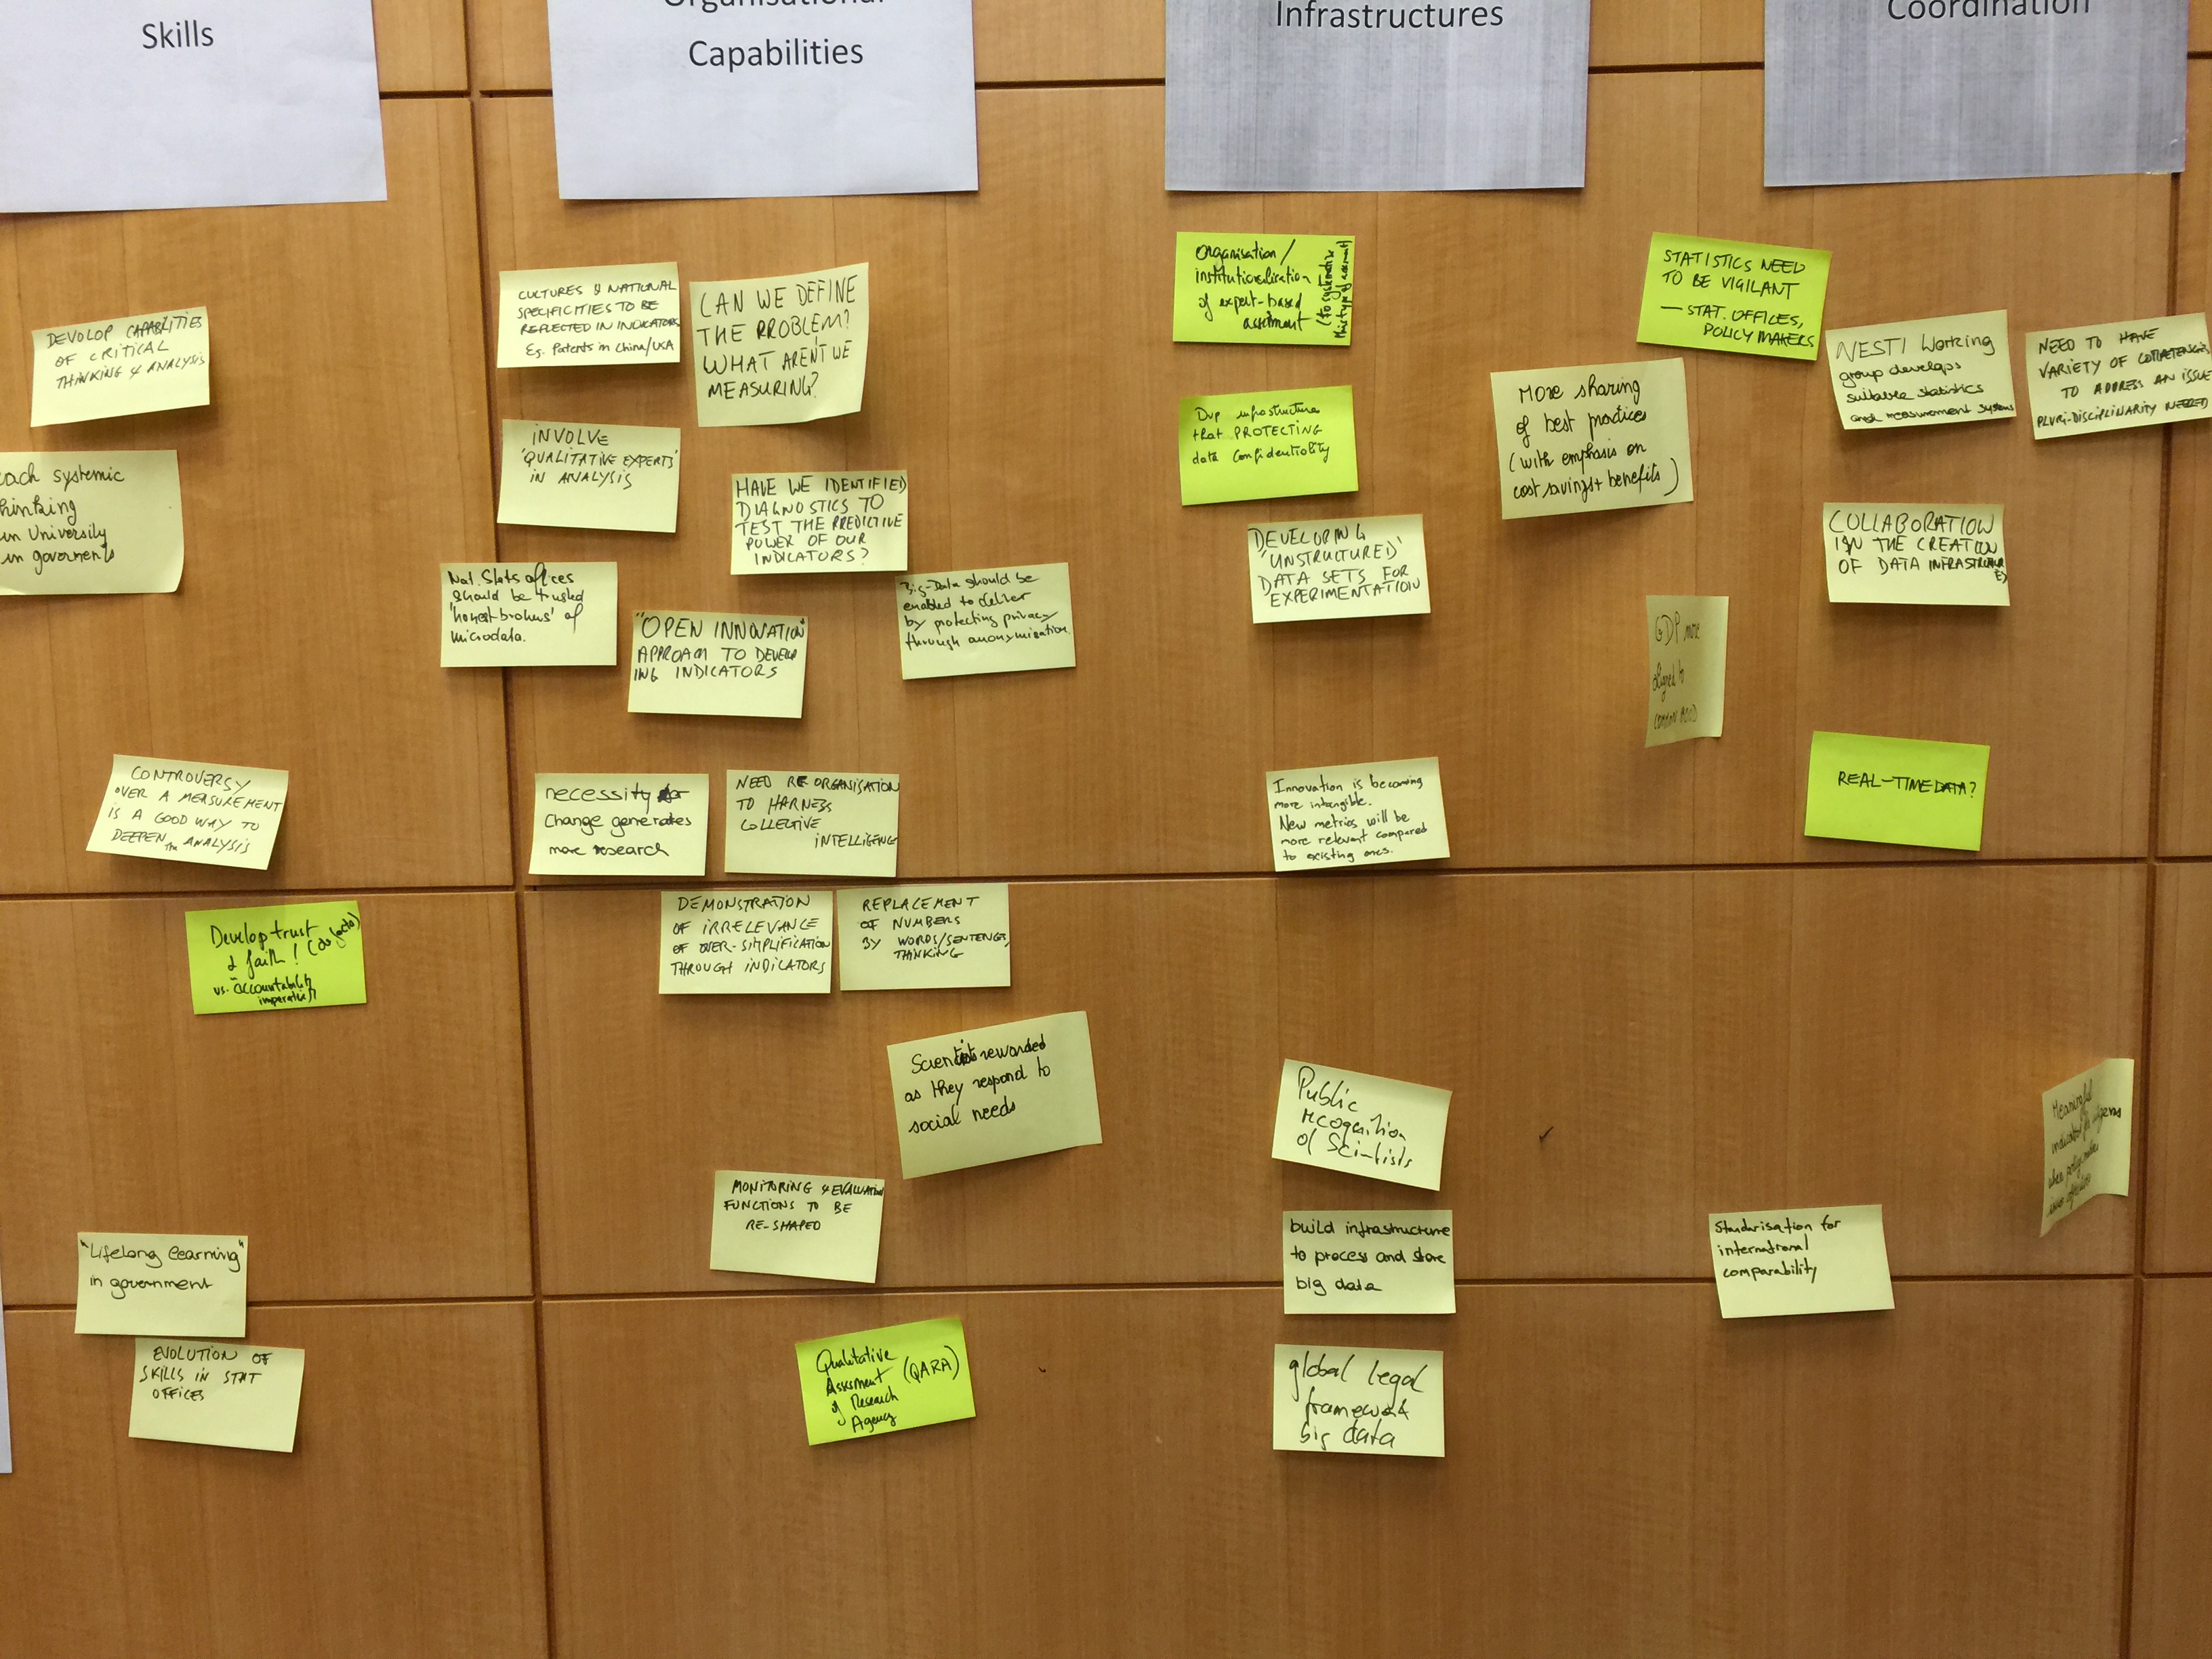 Skills
Organisational
Capabilities
Infrastructures
Coordination
DEVOLOP CAPABILITIES
OF CRITICAL
THINKING & ANALYSIS
each systemic
hinking
in University
in goverments
CONTROVERSY
OVER A MEASUREMENT
IS A GOOD WAY TO
DEEPEN THE ANALYSIS
Develop trust
& faith! (de facto)
vs. "accountability
imperative"
"Lifelong learning"
in government
EVOLUTION OF
SKILLS IN STAT
OFFICES
CULTURES & NATIONAL
SPECIFICITIES TO BE
REFLECTED IN INDICATORS
Eg. Patents in China/USA
CAN WE DEFINE
THE PROBLEM?
WHAT AREN'T WE
MEASURING?
INVOLVE
'QUALITATIVE EXPERTS'
IN ANALYSIS
HAVE WE IDENTIFIED
DIAGNOSTICS TO
TEST THE PREDICTIVE
POWER OF OUR
INDICATORS?
Nat. Stats offices
should be trusted
'honest brokers' of
microdata.
"OPEN INNOVATION"
APPROACH TO DEVELOP
ING INDICATORS
Big-Data should be
enabled to deliver
by protecting privacy
through anonymisation.
necessity for
change generates
more research
NEED RE ORGANISATION
TO HARNESS
COLLECTIVE
INTELLIGENCE
DEMONSTRATION
OF IRRELEVANCE
OF OVER-SIMPLIFICATION
THROUGH INDICATORS
REPLACEMENT
OF NUMBERS
BY WORDS/SENTENCES,
THINKING
Scientists rewarded
as they respond to
social needs
MONITORING & EVALUATION
FUNCTIONS TO BE
RE-SHAPED
Qualitative
Assesment (QARA)
of Research
Agency
Organisation/
institutionalisation
of expert-based
assesment
(to systematize
this type of assesment)
Dvp infrastructure
that PROTECTING
data confidentiality
DEVELOPING
'UNSTRUCTURED'
DATA SETS FOR
EXPERIMENTATION
Innovation is becoming
more intangible.
New metrics will be
more relevant compared
to existing ones.
Public
recognition
of Scientists
build infrastructure
to process and store
big data
global legal
framework
big data
More sharing
of best practices
(with emphasis on
cost savings + benefits)
STATISTICS NEED
TO BE VIGILANT
— STAT. OFFICES,
POLICY MAKERS
NESTI Working
group develops
suitable statistics
and measurement systems
NEED TO HAVE
VARIETY OF COMPETENCIES
TO ADDRESS AN ISSUE
PLURI-DISCIPLINARITY NEEDED
COLLABORATION
IN THE CREATION
OF DATA INFRASTRUCTUR
ES
GDP more
aligned to
REAL-TIME DATA?
Meaningful
Standarisation for
international
comparability